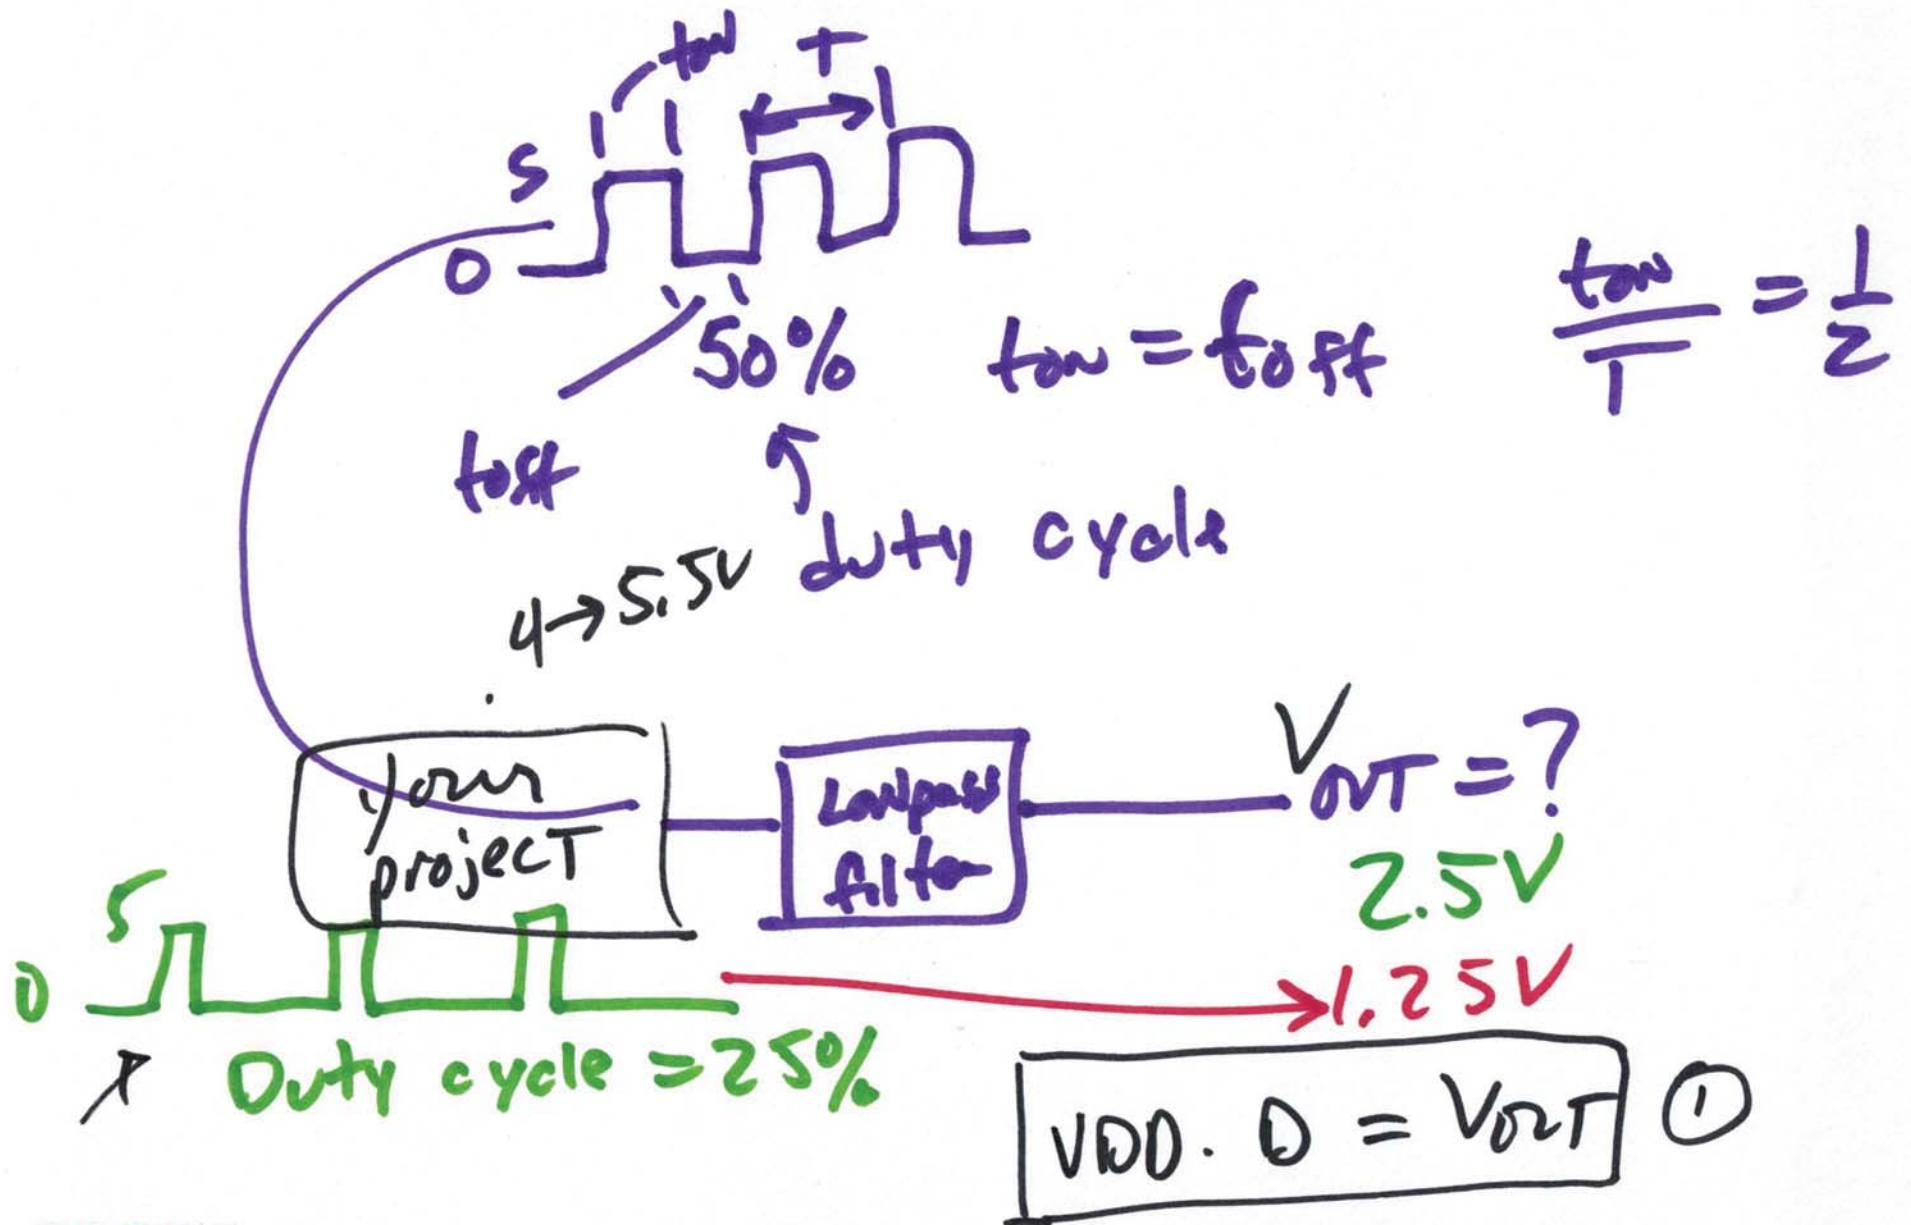 ton T
5
0
50% ton = toff ton/T = 1/2
toff
duty cycle
4→5.5V
your
project
Lowpass
filter
VOUT = ?
2.5V
5
0
1.25V
Duty cycle = 25%
VDD · D = VOUT ①